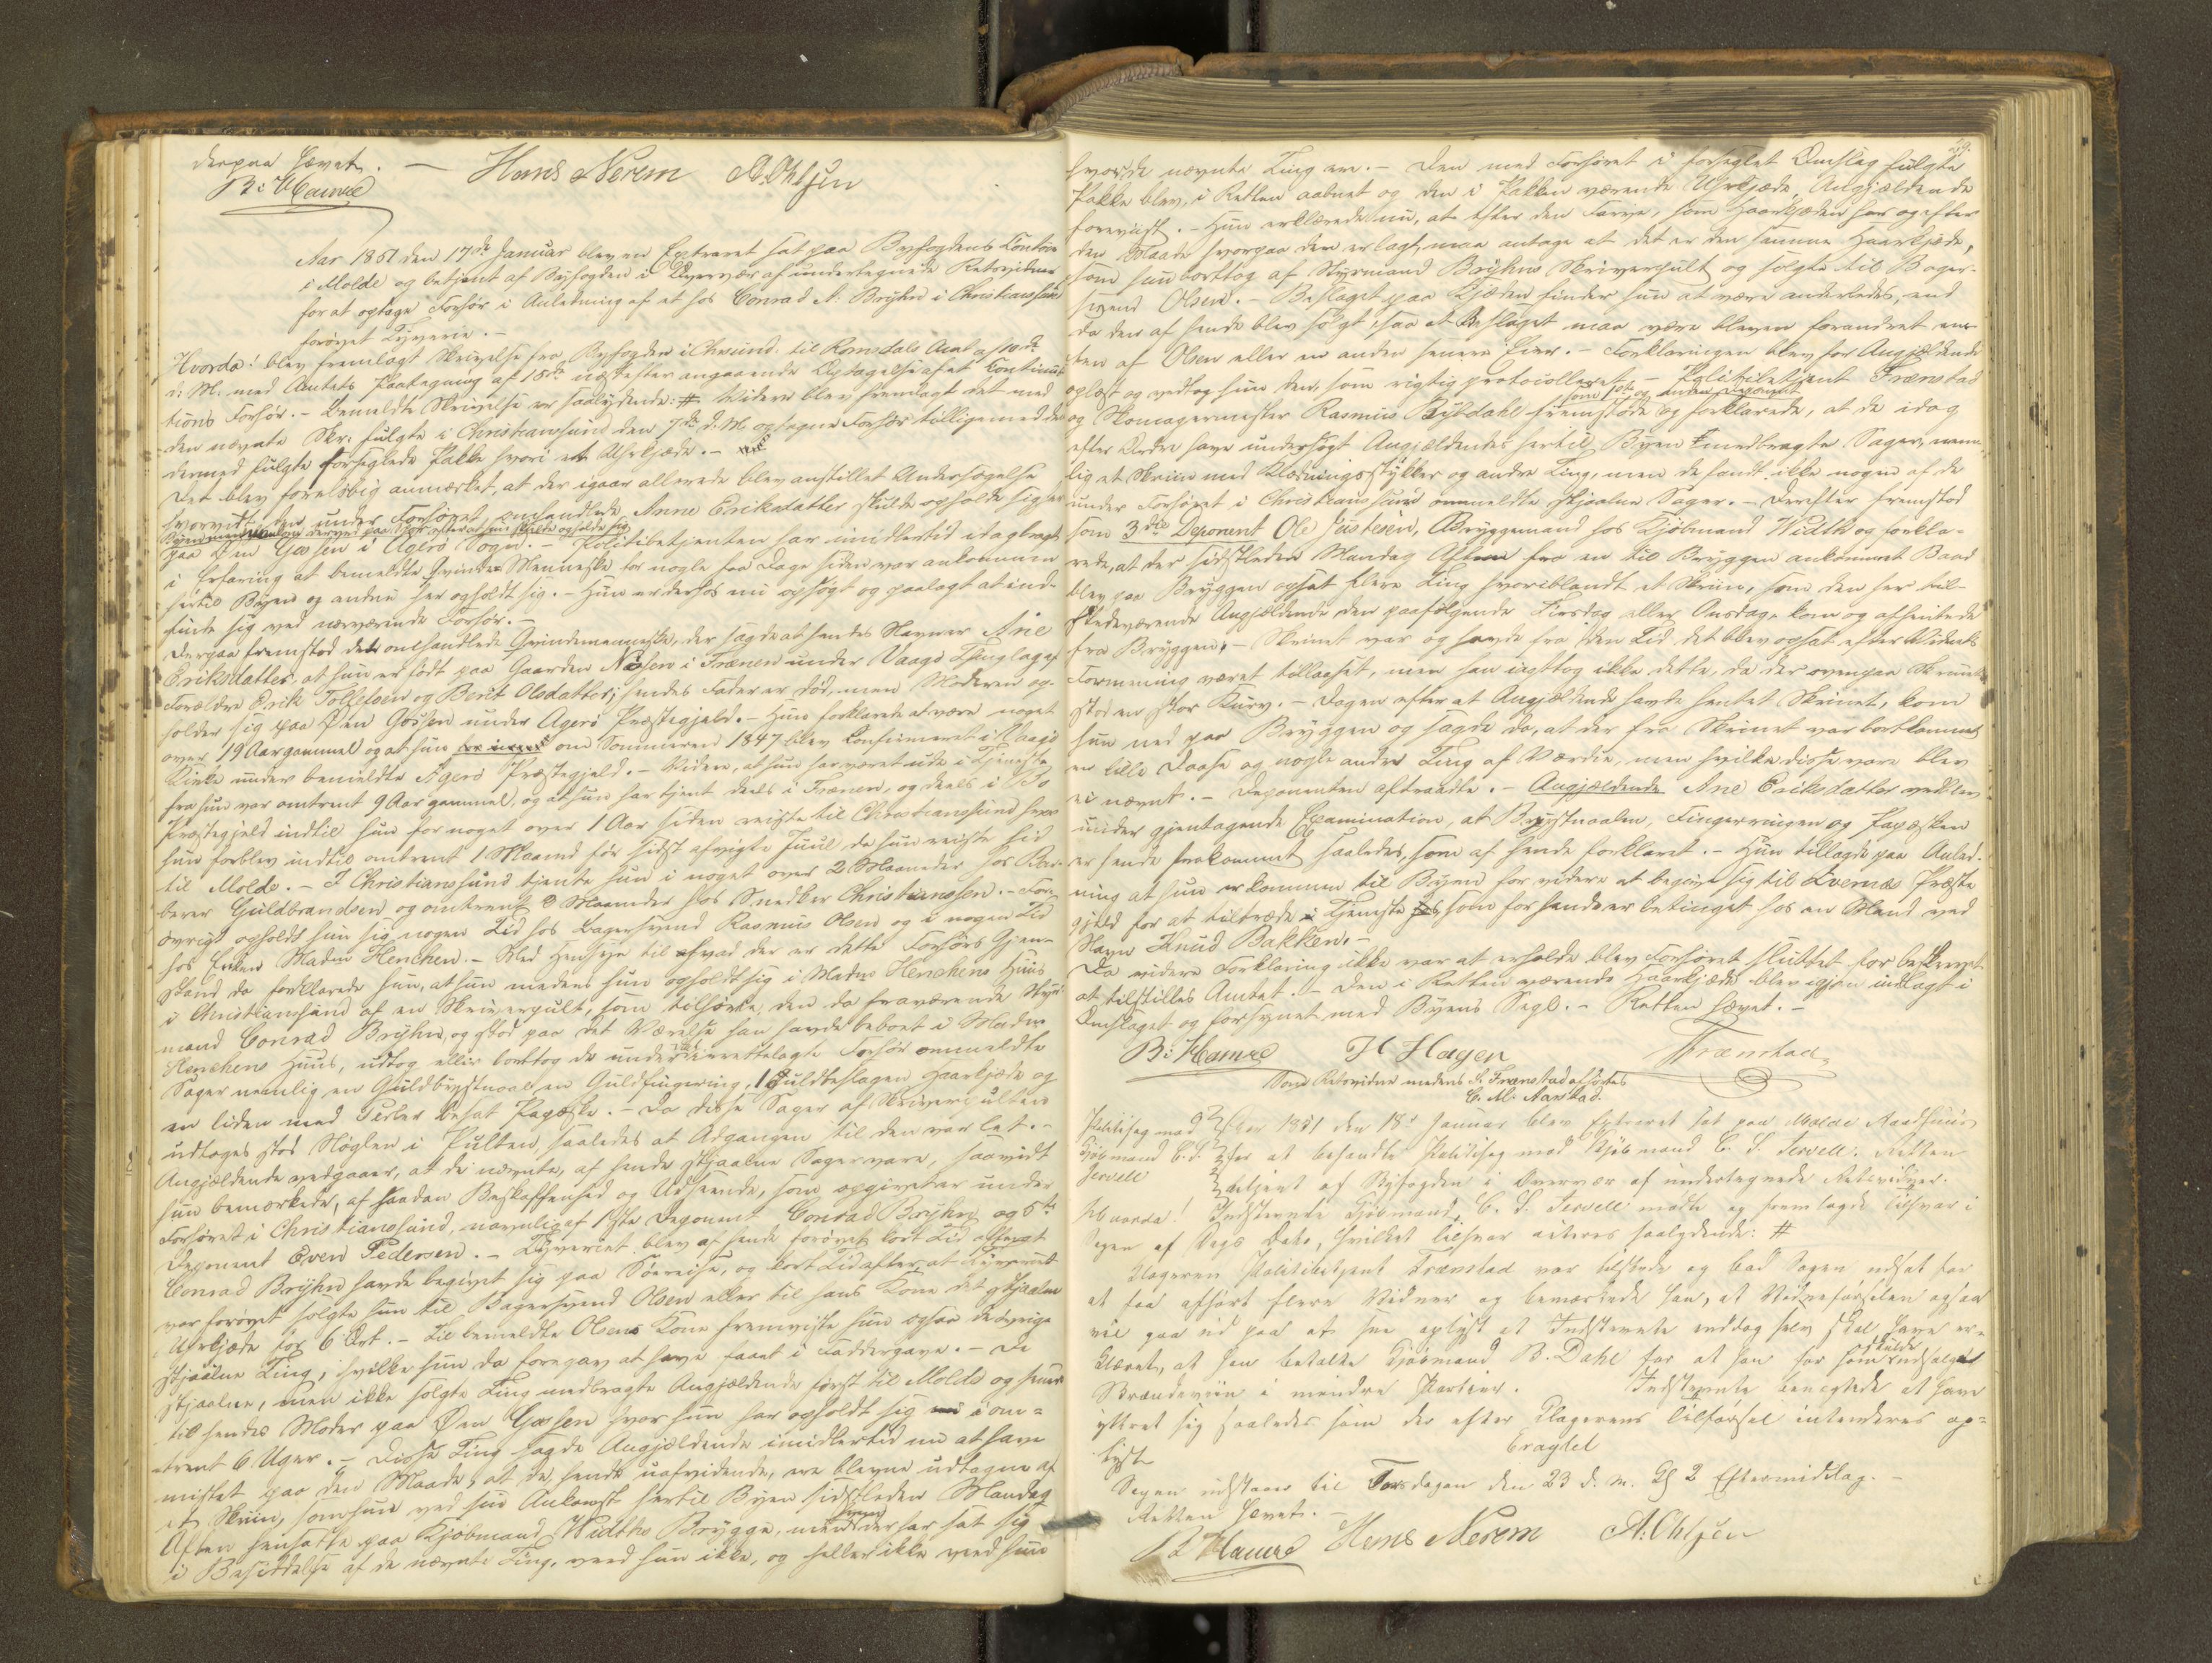 derpaa hævet. —
B: Hamre Hans Nerem A. Ohlsen
Aar 1851 den 17de Januar blev en Extraret sat paa Byfogdens Contoir
i Molde og betjent af Byfogden i Overvær af undertegnede Retsvidner
for at optage Forhør i Anledning af et hos Conrad A: Bryhn i Christianssund
forøvet Tyverie. —
Hvorda! blev fremlagt Skrivelse fra Byfogden i Chrsund. til Romsdals Amt af 10de
d: M: med Amtets Paategning af 15de næstefter angaaende Optagelse af et Continua-
tions Forhør. — Bemeldte Skrivelse er saalydende: # Videre blev fremlagt det med
den nævnte Skr. fulgte i Christianssund den 7de d. M. optagne Forhør tilligemed det
dermed fulgte forseglede Pakke hvori et Uhrkjæde. —
Det blev foreløbig anmærket, at der igaar allerede blev anstillet Undersøgelse
hvorvidt den under Forhøret omhandlede Anne Eriksdatter skulde opholde sig her
paa Øen Gossen i Agerø Sogn. — Politibetjenten har imidlertid idag bragt
i Erfaring at bemeldte Qvinde-Menneske for nogle faa Dage siden var ankommen
hertil Byen og endnu her opholdt sig. — Hun er derfor nu opsøgt og paalagt at ind-
finde sig ved nærværende Forhør. —
Derpaa fremstod det omhandlede Qvindemenneske, der sagde at hendes Navn er Ane
Eriksdatter, at hun er født paa Gaarden Næsen i Frænen under Vaagø Thinglag af
Forældre Erik Tollefsen og Berit Olsdatter; hendes Fader er død, men Moderen op-
holder sig paa Øen Gossen under Agerø Præstegjeld. — Hun forklarede at være noget
over 19 Aar gammel og at hun om Sommeren 1847 blev Confirmeret i Vaagø
Kirke under bemeldte Agerø Præstegjeld. — Videre, at hun har været ude i Tjeneste
fra hun var omtrent 9 Aar gammel, og at hun har tjent deels i Frænen, og deels i Bo
Præstegjeld indtil hun for noget over 1 Aar siden reiste til Christianssund hvor
hun forblev indtil omtrent 1 Maaned før sidst afvigte Juul, da hun reiste hid
til Molde. — I Christianssund tjente hun i noget over 2 Maaneder hos
Guldbrandsen og omtrent 2 Maaneder hos Snedker Christianssen. — For-
øvrigt opholdt hun sig nogen Tid hos Bagersvend Rasmus Olsen og i nogen Tid
hos Enken Madm Henchen. — Med Hensyn til hvad der er dette Forhørs Gjen-
stand da forklarede hun, at hun medens hun opholdt sig i Madm Henchens Huus
i Christianssund af en Skriverpult, som tilhørte, den da fraværende Styr-
mand Conrad Bryhn, og stod paa det Værelse han havde beboet i Madm
Henchens Huus, udtog eller borttog de under irettelagte Forhør ommeldte
Sager nemlig en Guldbrystnaal, en Guldfingerring, 1 Guldbeslagen Haarkjæde og
en liden med Perler besat Papæske. — Da disse Sager af Skriverpulten
udtoges stod Nøglen i Pulten, saaledes at Adgangen til den var let. —
Angjeldende vedgaaer, at de nævnte, af hende stjaalne Sager vare, saavidt
hun bemærkede, af saadan Beskaffenhed og Udseende, som opgivet er under
Forhøret i Christianssund, navnlig af 1ste Deponent Conrad Bryhn og 5te
Deponent Even Pedersen. — Tyveriet blev af hende forøvet kort Tid efterat
Conrad Bryhn havde begivet sig paa Søereise, og kort Tid efter at Tyveriet
var forøvet solgte hun til Bagersvend Olsen eller til hans Kone det stjaalne
Uhrkjæde for 6 Ort. — Til bemeldte Olsens Kone fremviste hun ogsaa de øvrige
stjaalne Ting, hvilke hun da foregav at have faaet i Faddergave. — De
stjaalne, men ikke solgte Ting medbragte Angjeldende først til Molde og senere
til hendes Moder paa Øen Gossen hvor hun har opholdt sig i om-
trent 6 Uger. — Disse Ting sagde Angjeldende imidlertid nu at have
mistet paa den Maade, at de, hende uafvidende, ere blevne udtagne af
et Skrin, som hun ved sin Ankomst hertil Byen sidstleden Mandag
Aften hensatte paa Kjøbmand Widths Brygge, men hvem der har sat sig
i Besiddelse af de nævnte Ting, veed hun ikke, og heller ikke veed hun
29.
hvor de nævnte Ting ere. — Den med Forhøret i forseglet Omslag fulgte
Pakke blev, i Retten aabnet og den i Pakken værende Uhrkjæde, Angjældende
forevist. — Hun erklærede nu, at efter den Farve, som Haarkjæden har og efter
den Maade hvorpaa den er lagt, maa antage at det er den samme Haarkjæde,
som hun borttog af Styrmand Bryhns Skriverpult og solgte til Bager-
svend Olsen. — Beslaget paa Kjæden finder hun at være anderledes, end
da den af hende blev solgt, saa at Beslaget maa være bleven forandret en-
ten af Olsen eller en anden senere Eier. — Forklaringen blev for Angjældende
oplæst og vedtog hun den, som rigtig protocolleret. — Politibetjent Frænstad
og Skomagermester Rasmus Rybdahl som 1ste og anden Deponent fremstode og forklarede, at de idag
efter Ordre have undersøgt Angjældendes hertil Byen medbragte Sager, nem-
lig et Skrin med Klædningsstykker og andre Ting, men de fandt ikke nogen af de
under Forhøret i Christianssund ommeldte stjaalne Sager. — Derefter fremstod
som 3die Deponent Ole Justesen, Bryggemand hos Kjøbmand Width og forkla-
rede, at der sidstleden Mandag Aften fra en til Bryggen ankommet Baad
blev paa Bryggen opsat flere Ting hvoriblandt et Skrin, som den her til-
stedeværende Angjældende den paafølgende Tirsdag eller Onsdag kom og afhentede
fra Bryggen. — Skrinet var og havde fra den Tid, det blev opsat efter Vidnets
Formening været tillaaset, men han iagttog ikke dette, da der ovenpaa Skrinet
stod en stor Kurv. — Dagen efter at Angjældende havde hentet Skrinet, kom
hun ned paa Bryggen og sagde da, at der fra Skrinet var bortkommet
en lille Daase og nogle andre Ting af Værdie, men hvilke disse vare blev
ei nævnt. — Deponenten aftraadte. — Angjældende Ane Eriksdatter vedblev
under gjentagende Examination, at Brystnaalen, Fingerringen og Papæsken
er hende frakommet saaledes, som af hende forklaret. — Hun tillagde paa Anled-
ning at hun er kommen til Byen for videre at begive sig til Kvernæs Præste
gjeld for at tiltræde Tjeneste som for hende er betinget hos en Mand ved
Navn Knud Bakken. —
Da videre Forklaring ikke var at erholde blev Forhøret sluttet for beskrevet
at tilstilles Amtet. — Den i Retten værende Haarkjæde blev igjen indlagt i
Omslaget og forsynet med Byens Segl. — Retten hævet. —
B: Hamre H Hagen Frænstad
Som Retsvidne medens P. Frænstad afhørtes
C. M. Aarstad.
Politisag mod Aar 1851 den 18de Januar blev Extraret sat paa Molde Raadhuus
Kjøbmand C. S. for at behandle Politisag mod Kjøbmand C. S. Jervell. Retten
Jervell betjent af Byfogden i Overvær af undertegnede Retsvidner.
Hvorda! Indstevnte Kjøbmand C. S. Jervell mødte og fremlagde Tilsvar i
Sagen af Dags Dato, hvilket Tilsvar acteres saalydende: #
Klageren Politibetjent Frænstad var tilstede og bad Sagen udsat for
at faa afhørt flere Vidner og bemærkede han, at Vidneførselen ogsaa
vil gaa ud paa at faa oplyst at Indstevnte endog selv skal have er-
klæret, at han betalte Kjøbmand B. Dahl for at han for ham skulde udsælge
Brændeviin i mindre Partier. Indstevnte benegtede at have
yttret sig saaledes som der efter Klagerens Tilførsel intenderes op-
lyst
Eragtet
Sagen udstaaer til Torsdagen den 23 d. M. Kl 2 Eftermiddag. —
Retten hævet. —
B Hamre Hans Nerem A. Ohlsen